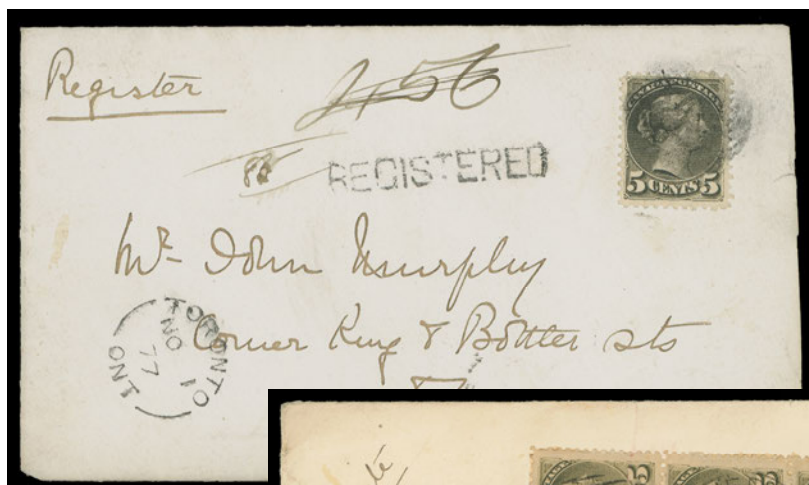 Register
456
88
REGISTERED
CANADA POSTAGE
5 CENTS 5
Mr. John Murphy
Corner King & Bottler sts
TORONTO
NO 1
77
ONT